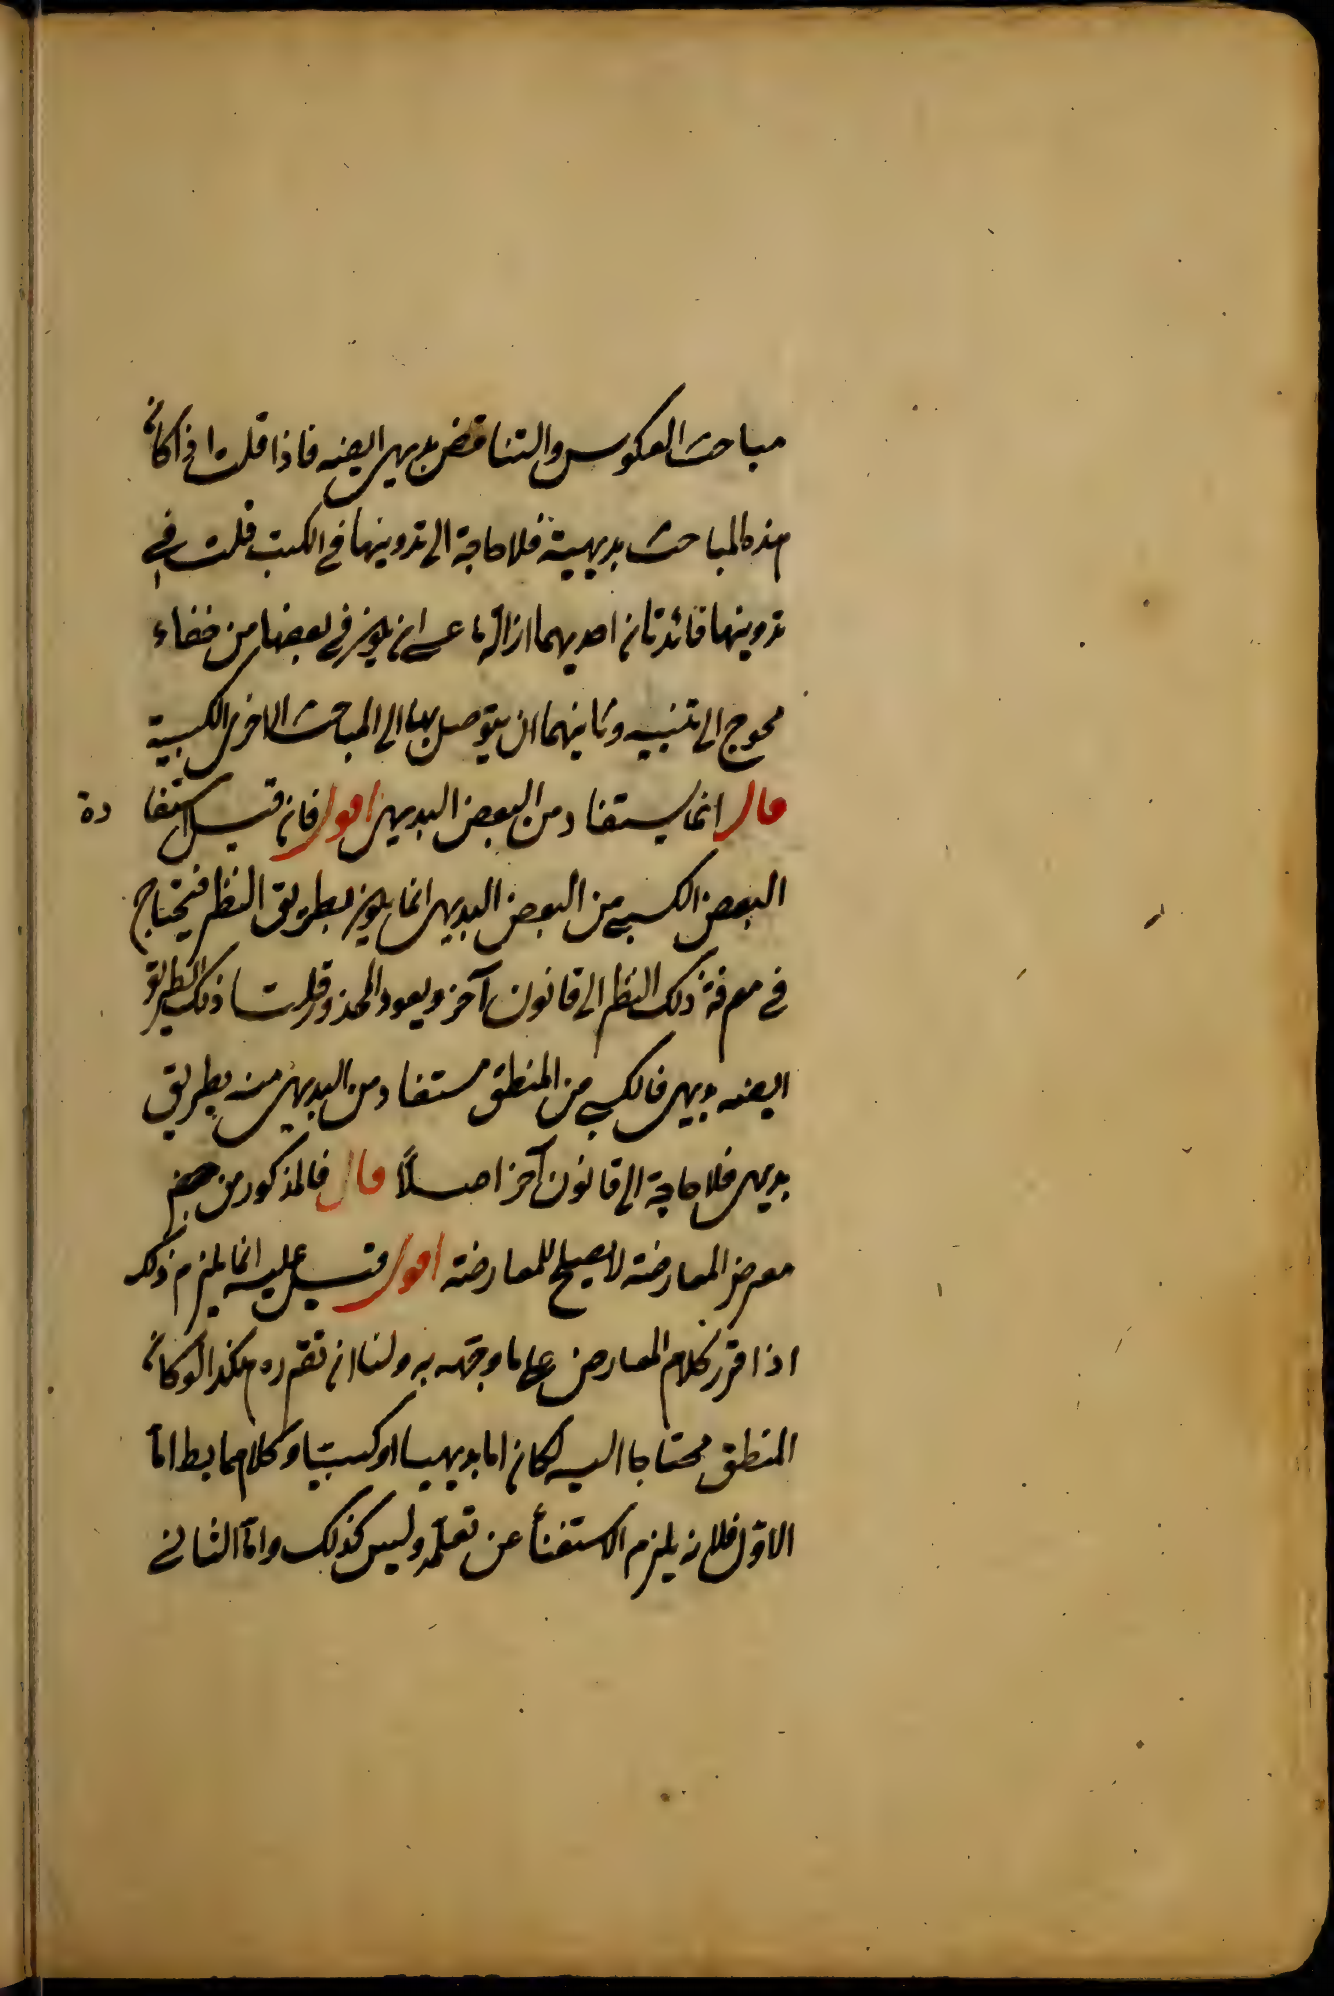 مباحث العكوس والتناقض بديهى ايضه فاذا قلت اذا كان
هذه المباحث بديهية فلا حاجة الى تدوينها فى الكتب قلت فى
تدوينها فائدتان احديهما ازالة ما عسى ان يكون فى بعضها من خفاء
محوج الى تنبيه وثانيهما ان يتوصل بها الى المباحث الاخرى الكسبية
قال انما يستفاد من البعض البديهى اقول فان قيل استفادة
البعض الكسبى من البعض البديهى انما يكون بطريق النظر فيحتاج
فى معرفة ذلك النظر الى قانون آخر ويعود المحذور قلت ذلك الطريق
ايضه بديهى فالكسبى من المنطق مستفاد من البديهى منه بطريق
بديهى فلا حاجة الى قانون آخر اصلاً قال فالمذكور من
معرض المعارضة لا يصلح للمعارضة اقول قيل عليه انما يلزم ذلك
اذا قرر كلام المعارض على ما وجهه به ولنا ان نقرره هكذا لو كان
المنطق محتاجا اليه لكان اما بديهيا او كسبيّا وكلاهما بط امّا
الاوّل فلانه يلزم الاستغناء عن تعلّمه وليس كذلك وامّا الثانى